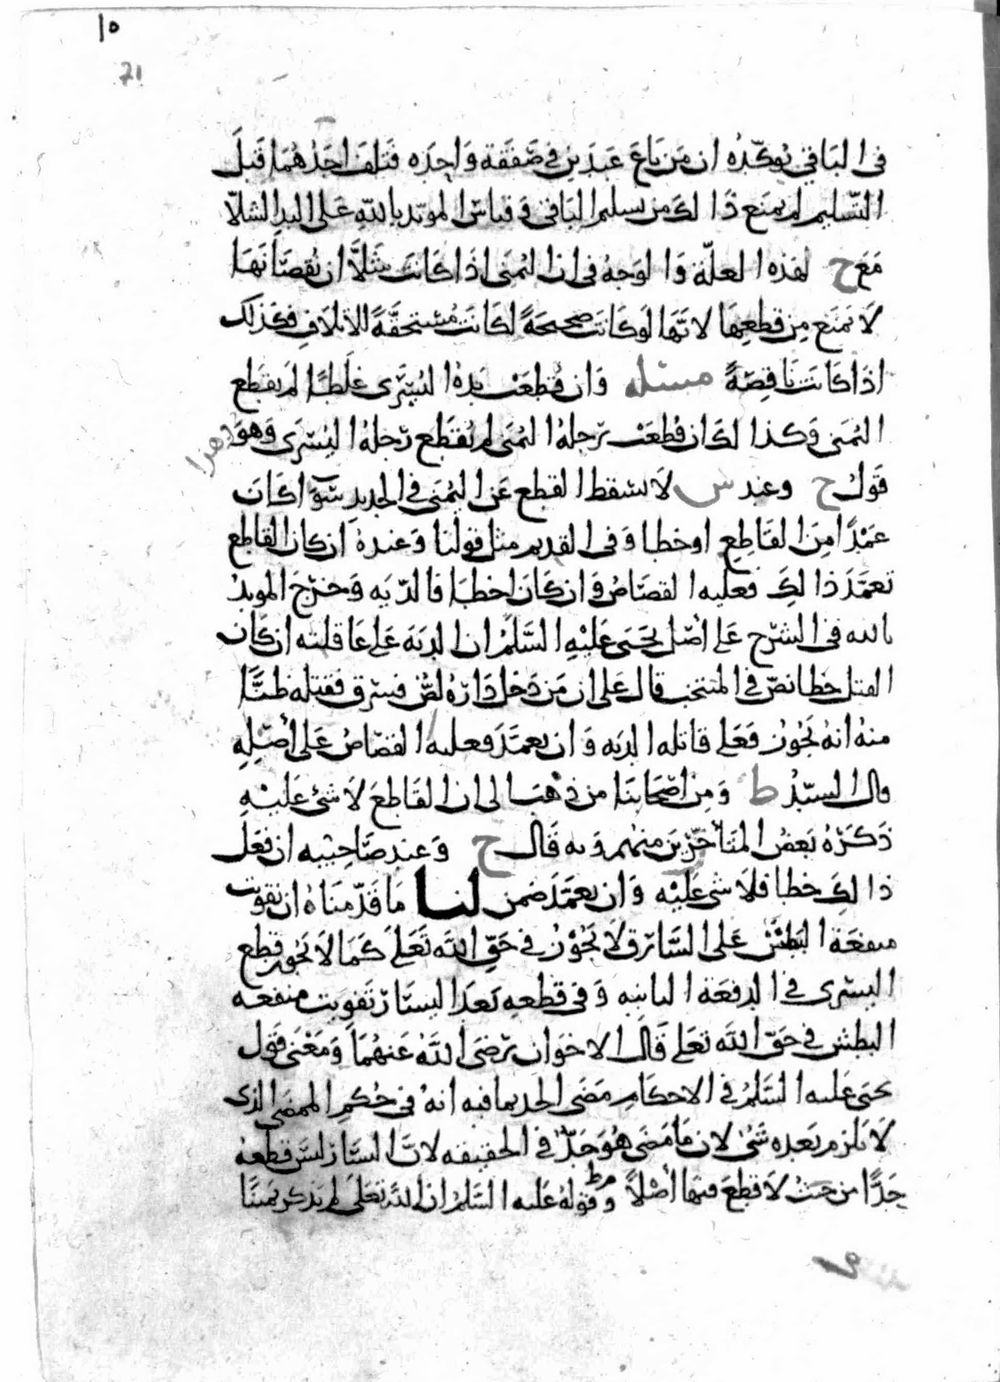 ١٥
21
فى الباقي يوكّده ان من باع عبدين في صفقة واحده فتلف احدهما قبل
التسليم لم يمنع ذا لك من تسليم الباقى وقياس المويد بالله على اليد الشلّا
مع ح لهذه العلّة والوجه فى ان اليمنى اذا كانت شلّا ان نقصانها
لا يمنع من قطعها لانها لو كانت صحيحة لكانت مستحقة للاتلاف فكذلك
اذا كانت ناقصة مسئله وان قطعت يده اليسرى غلطا لم يقطع
اليمنى وكذا لك ان قطعت رجله اليمنى لم يقطع رجله اليسرى وهو
قول ح وعند س لا يسقط القطع عن اليمنى في الجديد سوا كان
عمدًا من القاطع او خطا وفى القديم مثل قولنا وعنده ان كان القاطع
تعمّد ذا لك فعليه القصاص وان كان اخطا فالديه وخرّج المويد
بالله فى الشرح على اصل يحيى عليه السلم ان الديه على عاقلته ان كان
القتل خطا نصّ في المنتخب قال على ان من دخل داره لصّ فسرق فقتله ظنًّا
منه انه يجوز فعلى قاتله الديه وان تعمّد فعليه القصاص على اصله
قال السيّد ط ومن اصحابنا من ذهب الى ان القاطع لا شئ عليه
ذكره بعض المتاخرين منهم وبه قال ح وعند صاحبيه ان فعل
ذا لك خطا فلا شى عليه وان تعمّد ضمن لنا ما قدّمناه ان تفويت
منفعة البطش على السارق لا يجوز في حقّ الله تعلى كما لا يجوز قطع
اليسرى في الدفعة الثانيه وفى قطعه بعد اليسار تفويت منفعه
البطش في حقّ الله تعلى قال الاخوان رضي الله عنهما ومعنى قول
يحيى عليه السلم في الاحكام مضى الحد بما فيه انه فى حكم الممضى الذى
لا يلزم بعده شئ لان ما مضى هو حدّ في الحقيقه لان اليسار ليس قطعه
حدًّا من حيث لا قطع فيها اصلا وقوله عليه السلم ان الله تعلى لم يذكر يمينًا